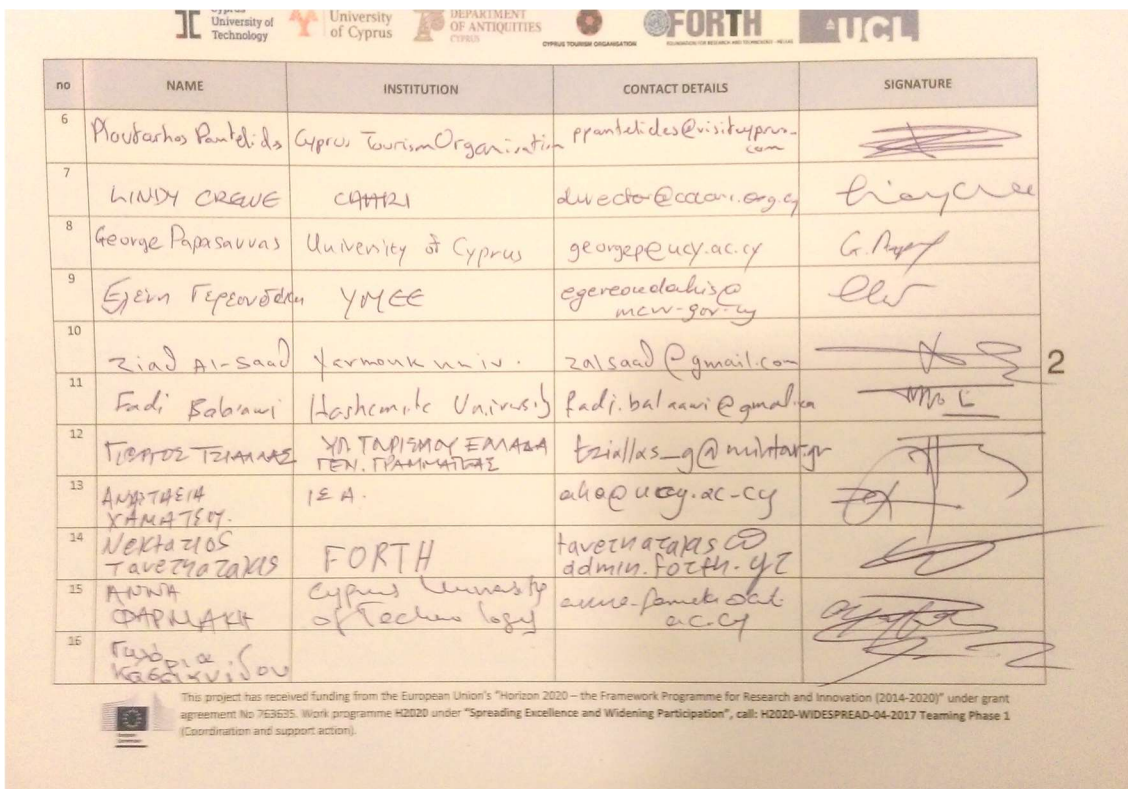 University of
Technology
University
of Cyprus
DEPARTMENT
OF ANTIQUITIES
CYPRUS
CYPRUS TOURISM ORGANISATION
FORTH
FOUNDATION FOR RESEARCH AND TECHNOLOGY - HELLAS
UCL
no NAME INSTITUTION CONTACT DETAILS SIGNATURE
6 Ploutarhos Pantelides Cyprus Tourism Organisation ppantelides@visitcyprus.
com
7 LINDY CREWE CAARI director@caari.org.cy
8 George Papasavvas University of Cyprus georgep@ucy.ac.cy
9 Ελένη Γερεουδάκη ΥΜΕΕ egereoudakis@
mcw.gov.cy
10 Ziad Al-Saad Yarmouk univ. zalsaad@gmail.com
2
11 Fadi Bala'awi Hashemite University fadi.balaawi@gmail.com
12 ΓΙΩΡΓΟΣ ΤΖΙΑΛΛΑΣ ΥΠ. ΤΟΥΡΙΣΜΟΥ ΕΛΛΑΔΑ tziallas_g@mintour.gr
ΓΕΝ. ΓΡΑΜΜΑΤΕΑΣ
13 ΑΝΑΣΤΑΣΙΑ Ι Σ Α. @ucy.ac.cy
ΧΑΜΑΤΣΟΥ.
14 Nektarios FORTH tavernarakis@
Tavernarakis admin.forth.gr
15 ΑΝΝΑ Cyprus University
ΦΑΡΜΑΚΗ of Technology ac.cy
16 Κασσιανίδου
This project has received funding from the European Union's "Horizon 2020 – the Framework Programme for Research and Innovation (2014-2020)" under grant
agreement No 763635. Work programme H2020 under "Spreading Excellence and Widening Participation", call: H2020-WIDESPREAD-04-2017 Teaming Phase 1
(Coordination and support action).